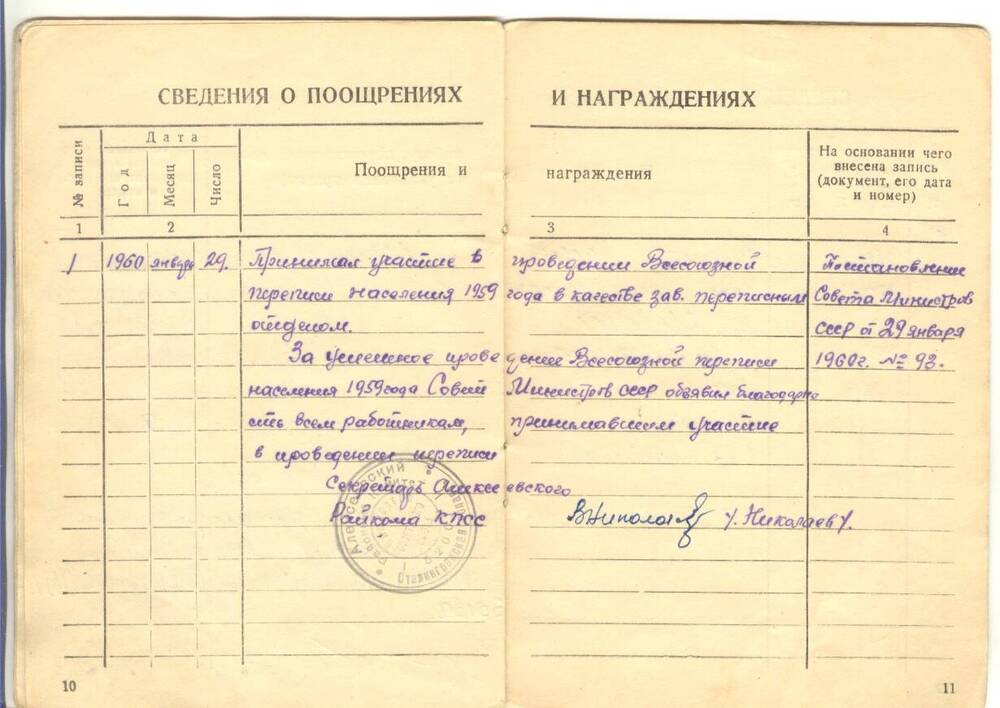 СВЕДЕНИЯ О ПООЩРЕНИЯХ И НАГРАЖДЕНИЯХ
№ записи
Дата
Год
Месяц
Число
Поощрения и награждения
На основании чего
внесена запись
(документ, его дата
и номер)
1 2 3 4
1 1960 январь 29. Принимал участие в проведении Всесоюзной Постановление
переписи населения 1959 года в качестве зав. переписным Совета Министров
отделом. СССР от 29 января
За успешное проведение Всесоюзной переписи 1960 г. № 93.
населения 1959 года Совет Министров СССР объявил благодарно
сть всем работникам, принимавшим участие
в проведении переписи
Секретарь Алексеевского
Райкома КПСС /Николаев/.
Алексеевский
Сталинградская
10
11